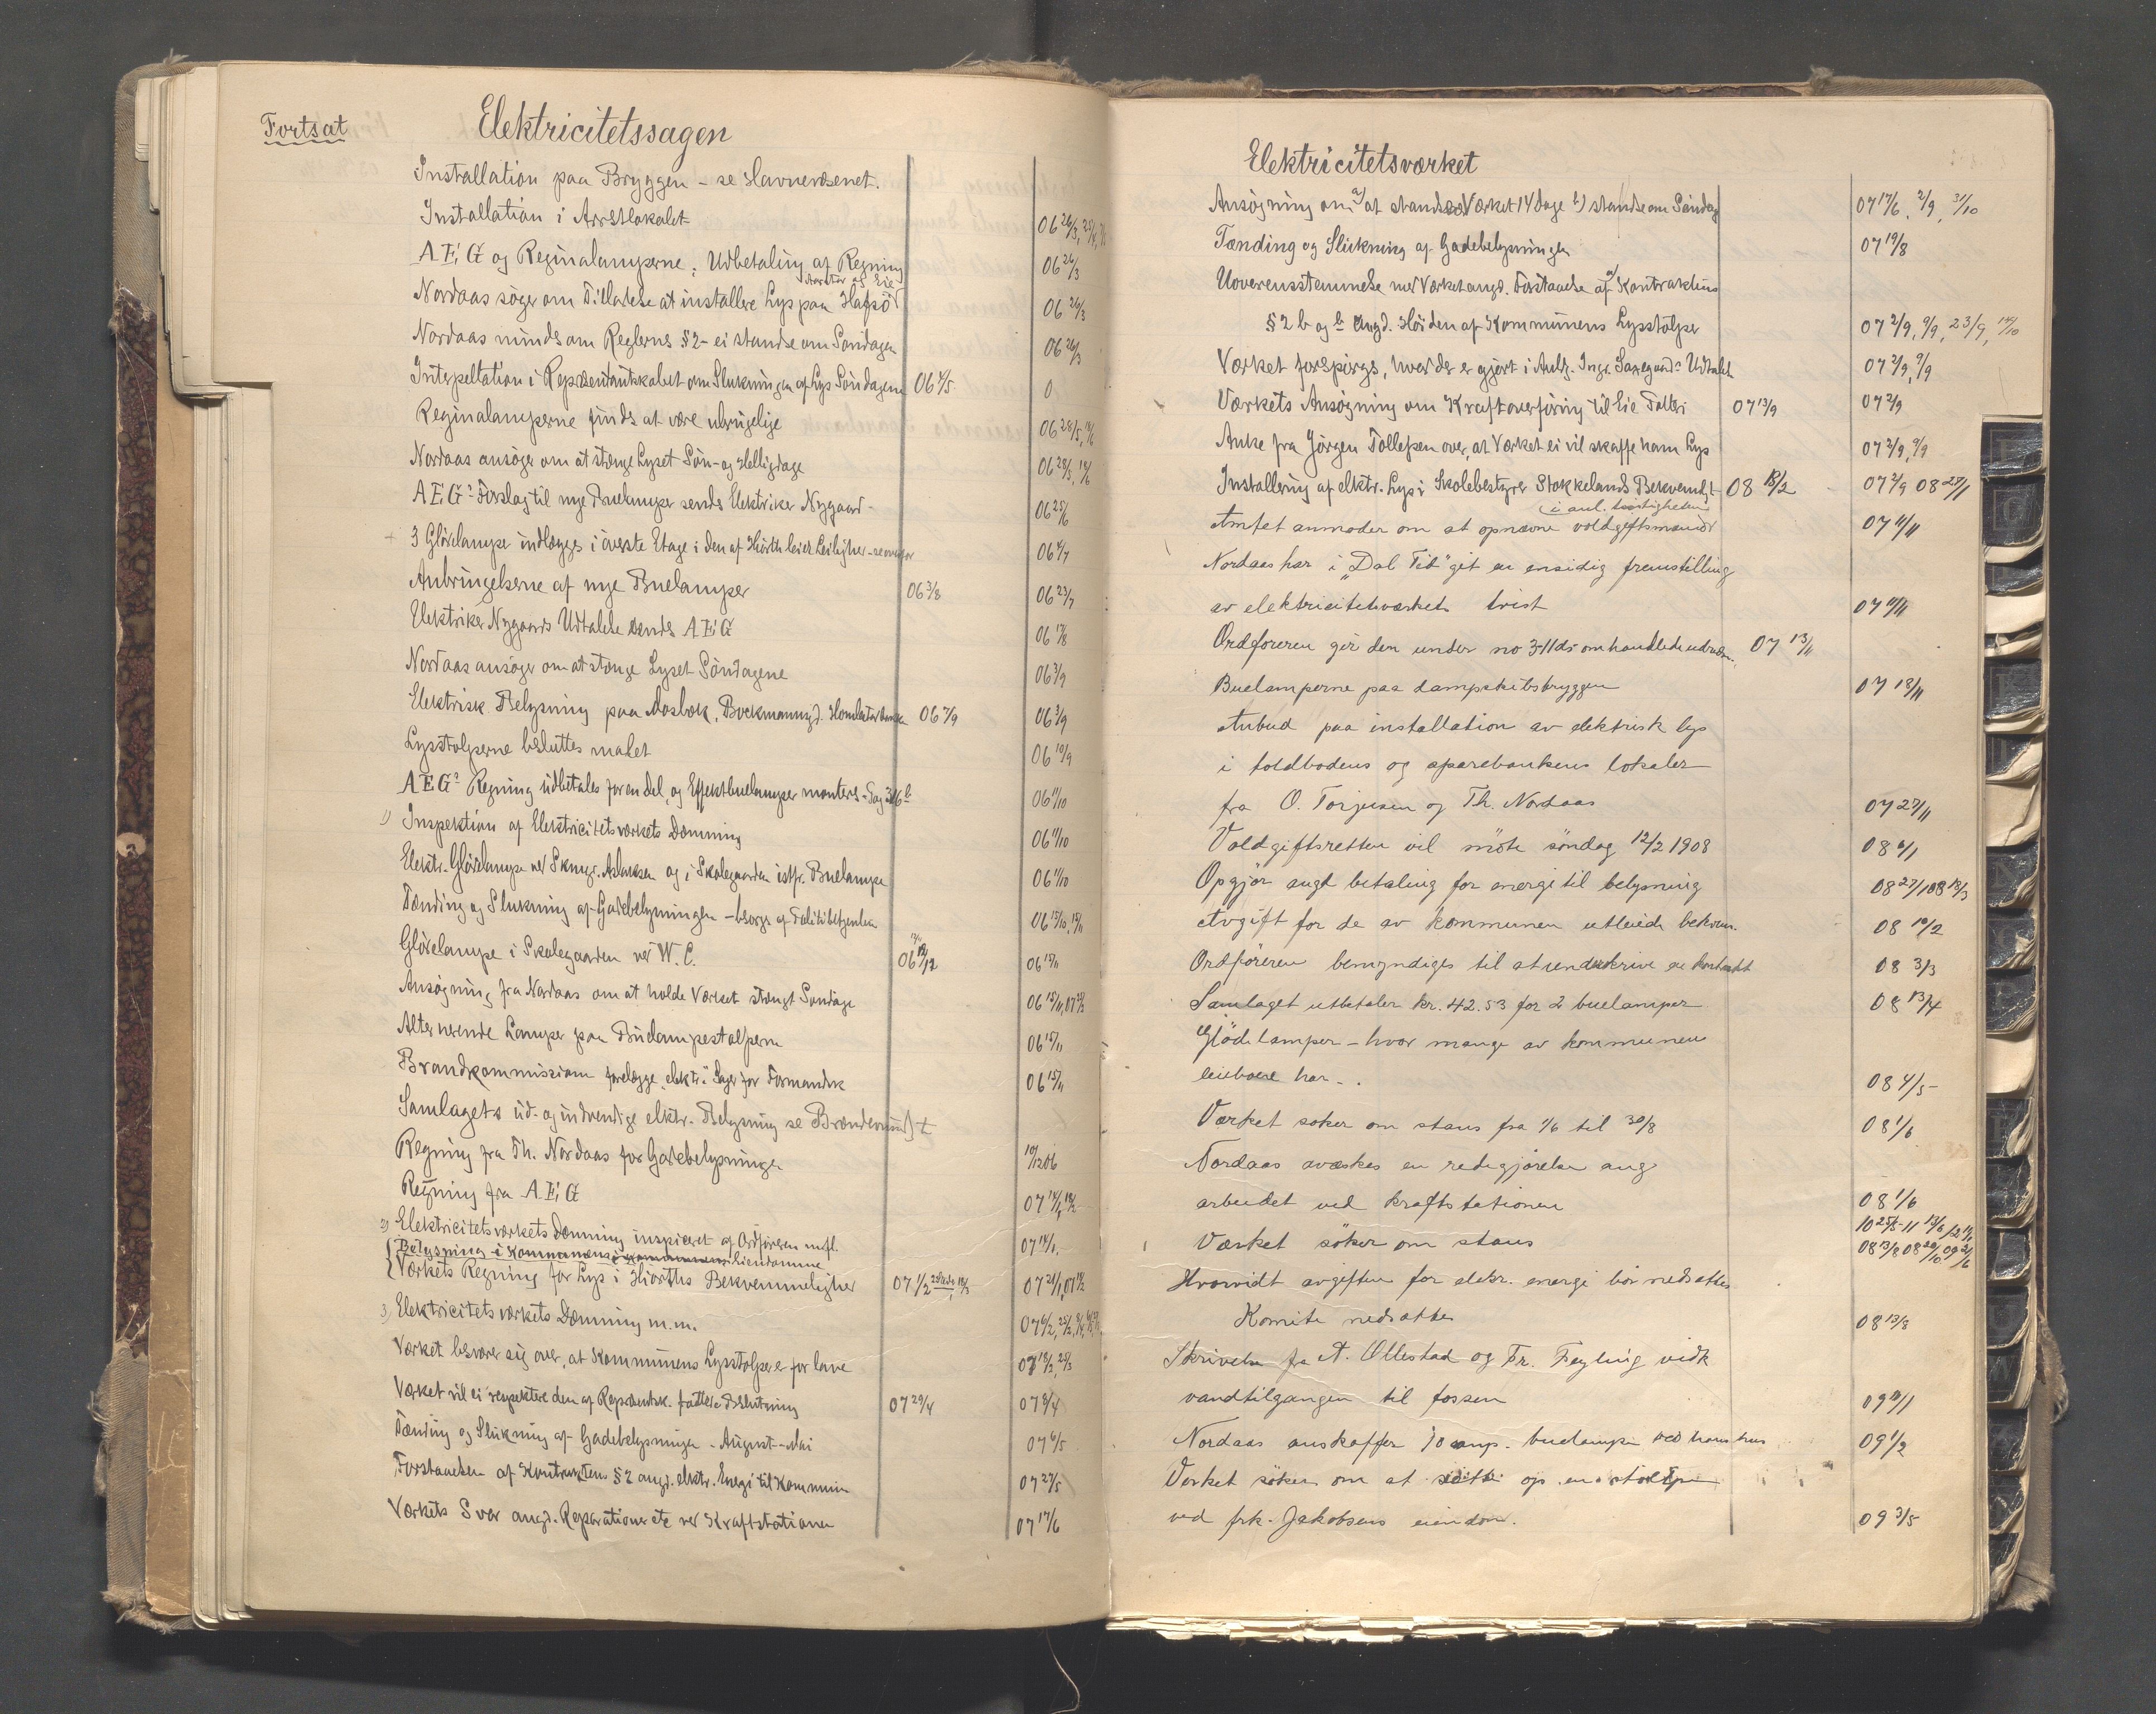 Fortsat
Elektricitetssagen
Installation paa Bryggen - se Havnevæsenet.
Installation i Arrestlokalet 06 26/3, 25/4,
A E, G og Reginalamperne; Udbetaling af Regning 06 26/3
Nordaas söger om Tilladelse at installere Lys paa Hafsö 06 26/3
Nordaas mindes om Reglernes § 2 - ei standse om Söndagen 06 26/3
Interpellation i Repræsentantskabet om Slukningen af Lys Söndagene 06 4/5 0
Reginalamperne findes at være ubrugelige 06 28/5,
Nordaas ansöger om at stænge Lyset Sön- og Helligdage 06 28/5,
A E G's Forslag til nye Buelamper sendes Elektriker Nygaard - 06 25/6
3 Glödelamper indlægges i överste Etage i den af Hiorth leiede Leilighed - 06 4/7
Anbringelserne af nye Buelamper 06 3/8 06 23/7
Elektriker Nygaards Udtalelse sendes A E G 06 17/8
Nordaas ansöger om at stænge Lyset Söndagene 06 3/9
Elektrisk Belysning paa Mosbæk, 06 7/9 06 3/9
Lysstolperne besluttes malet 06 10/9
A E G's Regning udbetales for en del, og Effektbuelamper monteres - Sag 346 b 06 11/10
1) Inspektion af Elektricitetsværkets Dæmning 06 11/10
Elektr. Glödelampe ved og i Skolegaarden istf. Buelampe 06 11/10
Tænding og Slukning af Gadebelysningen - besörges af Politibetjenten 06 15/10, 15/11
Glödelampe i Skolegaarden ved W. C. 06 12/12 06 15/11
Ansögning fra Nordaas om at holde Værket stængt Söndage 06 15/11, 07
Alternerende Lamper paa Buelampestolperne 06 15/11
Brandkommission forelægge "elektr." Sager for Formandsk 06 15/11
Samlagets ud- og indvendige elektr. Belysning se Brændevinss
Regning fra Th. Nordaas for Gadebelysningen 10/12 06
Regning fra A. E, G 07 14/1, 18/2
2) Elektricitetsværkets Dæmning inspiceret af Ordföreren m.fl. 07 14/1.
Belysning i Kommunens Eiendomme
Værkets Regning for Lys i Hiorths Bekvemmeligher 07 1/2 07 21/1,
3) Elektricitetsværkets Dæmning m.m. 07 6/2, 25/2,
Værket besværer sig over, at Kommunens Lysstolper er for lave 07 18/2, 25/3
Værket vil ei respektere den af Repræsentsk. fattede Beslutning 07 29/4 07 9/4
Tænding og Slukning af Gadebelysningen - August - Mai 07 6/5
Forstaaelsen af Kontraktens § 2 angd. elektr. Energi til Kommunen 07 27/5
Værkets Svar angd. Reparationer etc ved Kraftstationen 07 17/6
Elektricitetsværket
Ansögning om a) at standse Værket 14 dage b) standse om Söndag 07 17/6, 2/9, 31/10
Tænding og Slukning af Gadebelysningen 07 19/8
Uoverensstemmelse med Værket angd. Forstaaelse af a) Kontraktens
§ 2 b og b) Angd. Höiden af Kommunens Lysstolper 07 2/9, 9/9, 23/9, 14/10
Værket forespörges, hvad der er gjort i Anlg. Ingr. Saxegaards Udtalels 07 2/9, 9/9
Værkets Ansögning om Kraftoverföring til Eie Potteri 07 13/9 07 2/9
Anke fra Jörgen Tollefsen over, at Værket ei vil skaffe ham Lys 07 2/9, 9/9
Installering af elektr. Lys i Skolebestyrer Stokkelands Bekvemh,t 08 18/2 07 2/9 08 27/1
i anl. tvistigheten
Amtet anmoder om at opnævne voldgiftsmænd 07 11/11
Nordaas har i "Dal Tid" git en ensidig fremstilling
av elektricitetsværkets tvist 07 11/11
Ordföreren gir den under no 3 - 11 ds omhandlede 07 13/11
Buelamperne paa dampskibsbryggen 07 18/11
Anbud paa installation av elektrisk lys
i toldbodens og sparebankens lokaler
fra O. Torjusen og Th. Nordaas 07 27/11
Voldgiftsretten vil möte söndag 12/2 1908 08 6/1
Opgjör angd betaling for energi til belysning 08 27/1 08 18/3
Avgift for de av kommunen utleiede bekvem. 08 10/2
Ordföreren bemyndiges til at underskrive en kontrakt 08 3/3
Samlaget utbetaler kr. 42.53 for 2 buelamper 08 13/4
Glödelamper - hvor mange av kommunens
leieboere har -. 08 4/5
Værket söker om stans fra 1/6 til 30/8 08 1/6
Nordaas avæskes en redegjörelse ang
arbeidet ved kraftstationen 08 1/6
Værket söker om stans 10 25/5 - 11 13/6 08 13/8 08 20/10
Hvorvidt avgiften for elekr. energi bör nedsattes
Komite nedsattes 08 13/8
Skrivelse fra A. Ollestad og Fr. Feyling vedk
vandtilgangen til fossen 09 11/1
Nordaas anskaffer 10 amp. buelampe ved hans hus 09 1/2
Verket söker om at sætte op en stolpe
ved frk. Jakobsens eiendom. 09 3/5